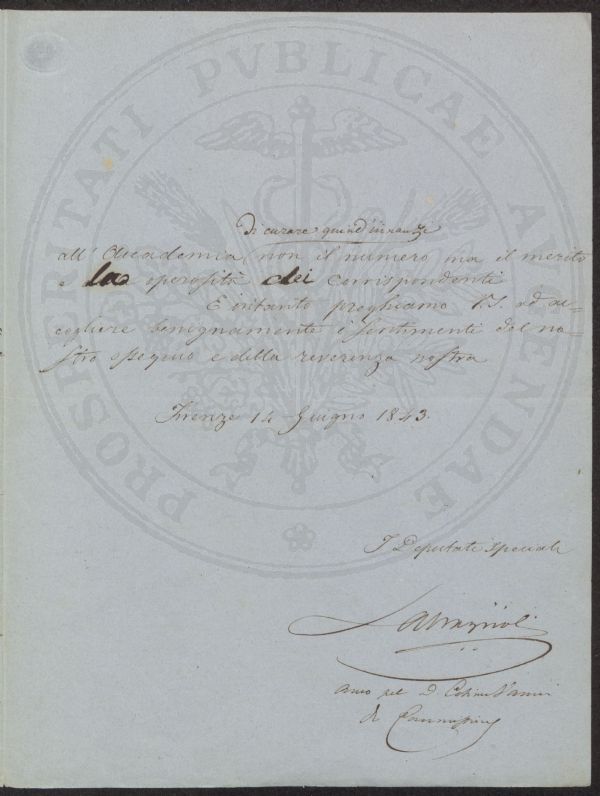 PROSPERITATI PVBLICAE AVGENDAE
Di curare quind'innanzi
all' Accademia non il numero ma il merito
e la operosità dei corrispondenti
E intanto preghiamo V.S. ad ac-
cogliere benignamente i sentimenti del no-
stro ossequio e della reverenza nostra
Firenze 14 Giugno 1843.
I Deputati speciali